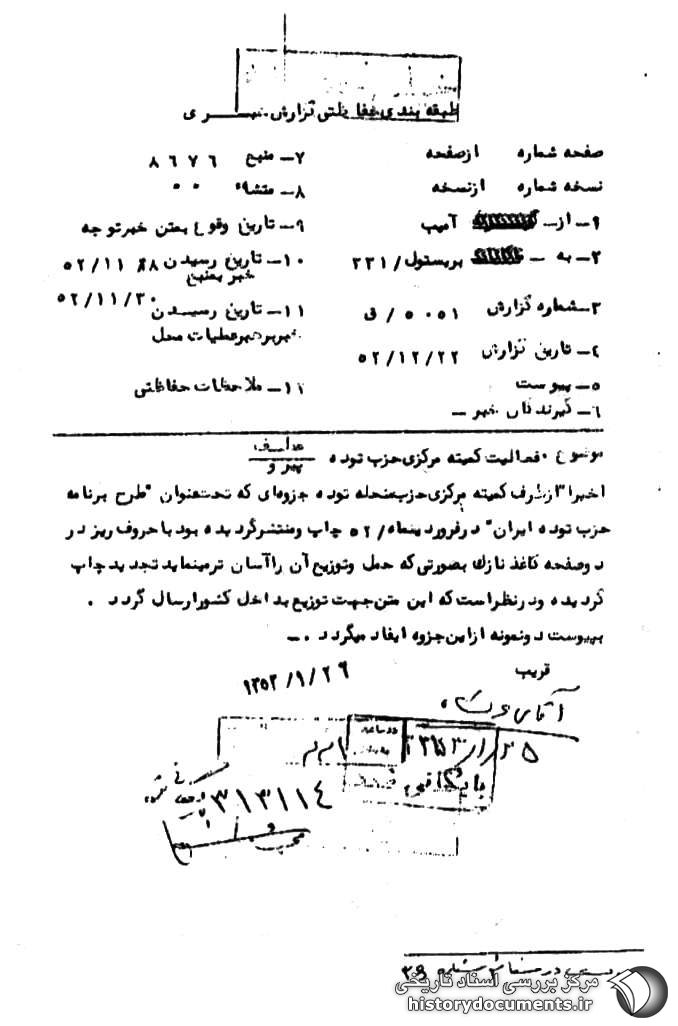 طبقه بندی حفاظتی گزارش خبری
صفحه شماره از صفحه
نسخه شماره از نسخه
۱ـ از ـ آمیب
۲ـ به ـ بریستول/ ۳۳۱
۳ـ شماره گزارش ۵۰۵۱ / ق
۴ـ تاریخ گزارش ۵۲/۱۲/۲۲
۵ـ پیوست
۶ـ گیرندگان خبر ـ
۷ـ منبع ۸۶۷۶
۸ـ منشاء ۰۰
۹ـ تاریخ وقوع بمتن خبر توجه
۱۰ـ تاریخ رسیدن خبر بمنبع ۵۲/۱۱/۲۸
۱۱ـ تاریخ رسیدن خبر برهبر عملیات محل ۵۲/۱۱/۳۰
۱۲ـ ملاحظات حفاظتی
موضوع ۰ فعالیت کمیته مرکزی حزب توده
پیرو
اخیرا از طرف کمیته مرکزی حزب منحله توده جزوه‌ای که تحت عنوان "طرح برنامه
حزب توده ایران" در فروردینماه/ ۵۲ چاپ و منتشر گردیده بود با حروف ریز در
دو صفحه کاغذ نازک بصورتی که حمل و توزیع آن را آسان تر مینماید تجدید چاپ
گردیده و در نظر است که این متن جهت توزیع بداخل کشور ارسال گردد .
بپیوست دو نمونه از این جزوه ایفاد میگردد . ـ
قریب
۱۳۵۳/۱/۲۶
آقای
بایگانی شد
۳۱۳۱۱۴
مرکز بررسی اسناد تاریخی
historydocuments.ir